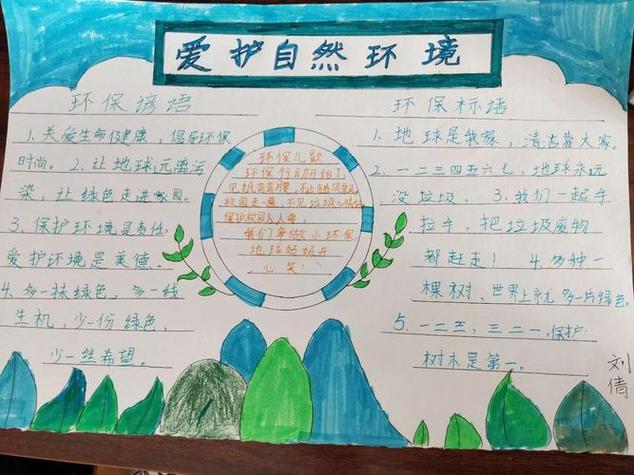 爱护自然环境
环保谚语
1.关爱生命健康，倡导环保
时尚。2.让地球远离污
染，让绿色走进家园。
3.保护环境是责任，
爱护环境是美德。
4.多一抹绿色，多一线
生机，少一份绿色，
少一丝希望。
环保儿歌
环保行动开始了
保护校园人人要
我们争做小环保
地球妈妈开
心笑！
环保标语
1.地球是我家，清洁靠大家。
2.一二三四五六七，地球永远
没垃圾。3.我们一起手
拉手，把垃圾废物
都赶走！4.多种一
棵树，世界上就多一片绿色。
5.一二三，三二一，保护
树木是第一。
刘
倩